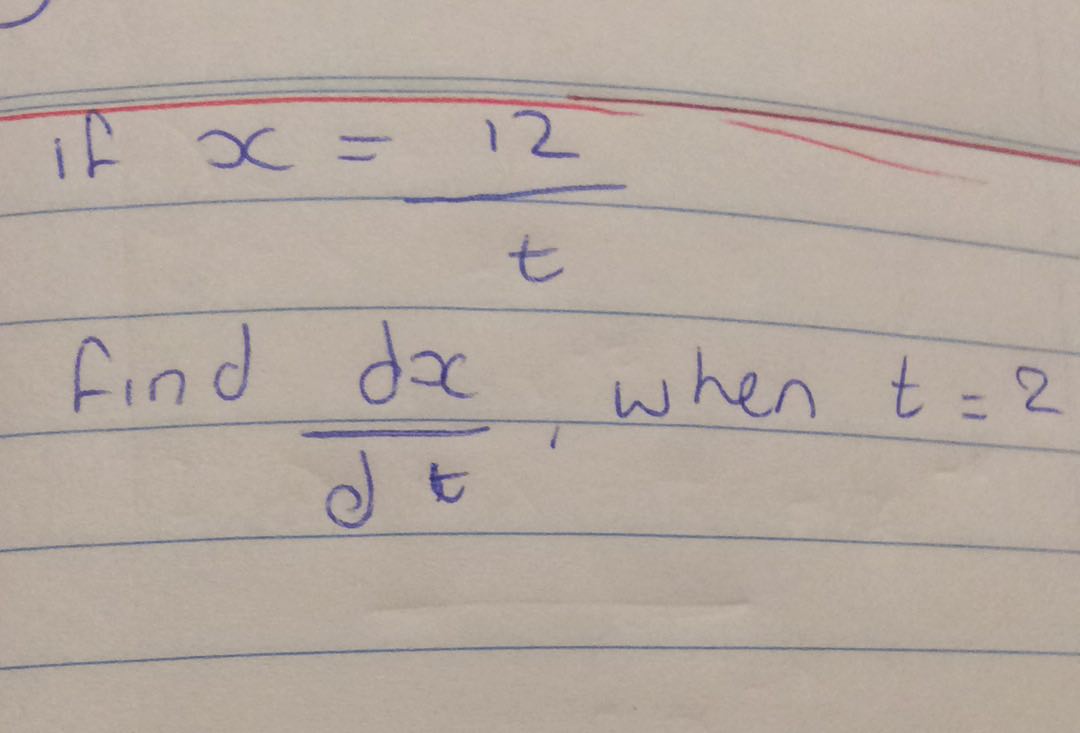 if x = 12/t
find dx/dt, when t = 2